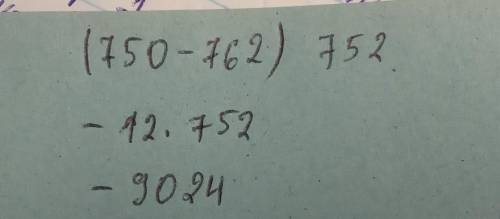 (750-762) 752
- 12. 752
- 9024